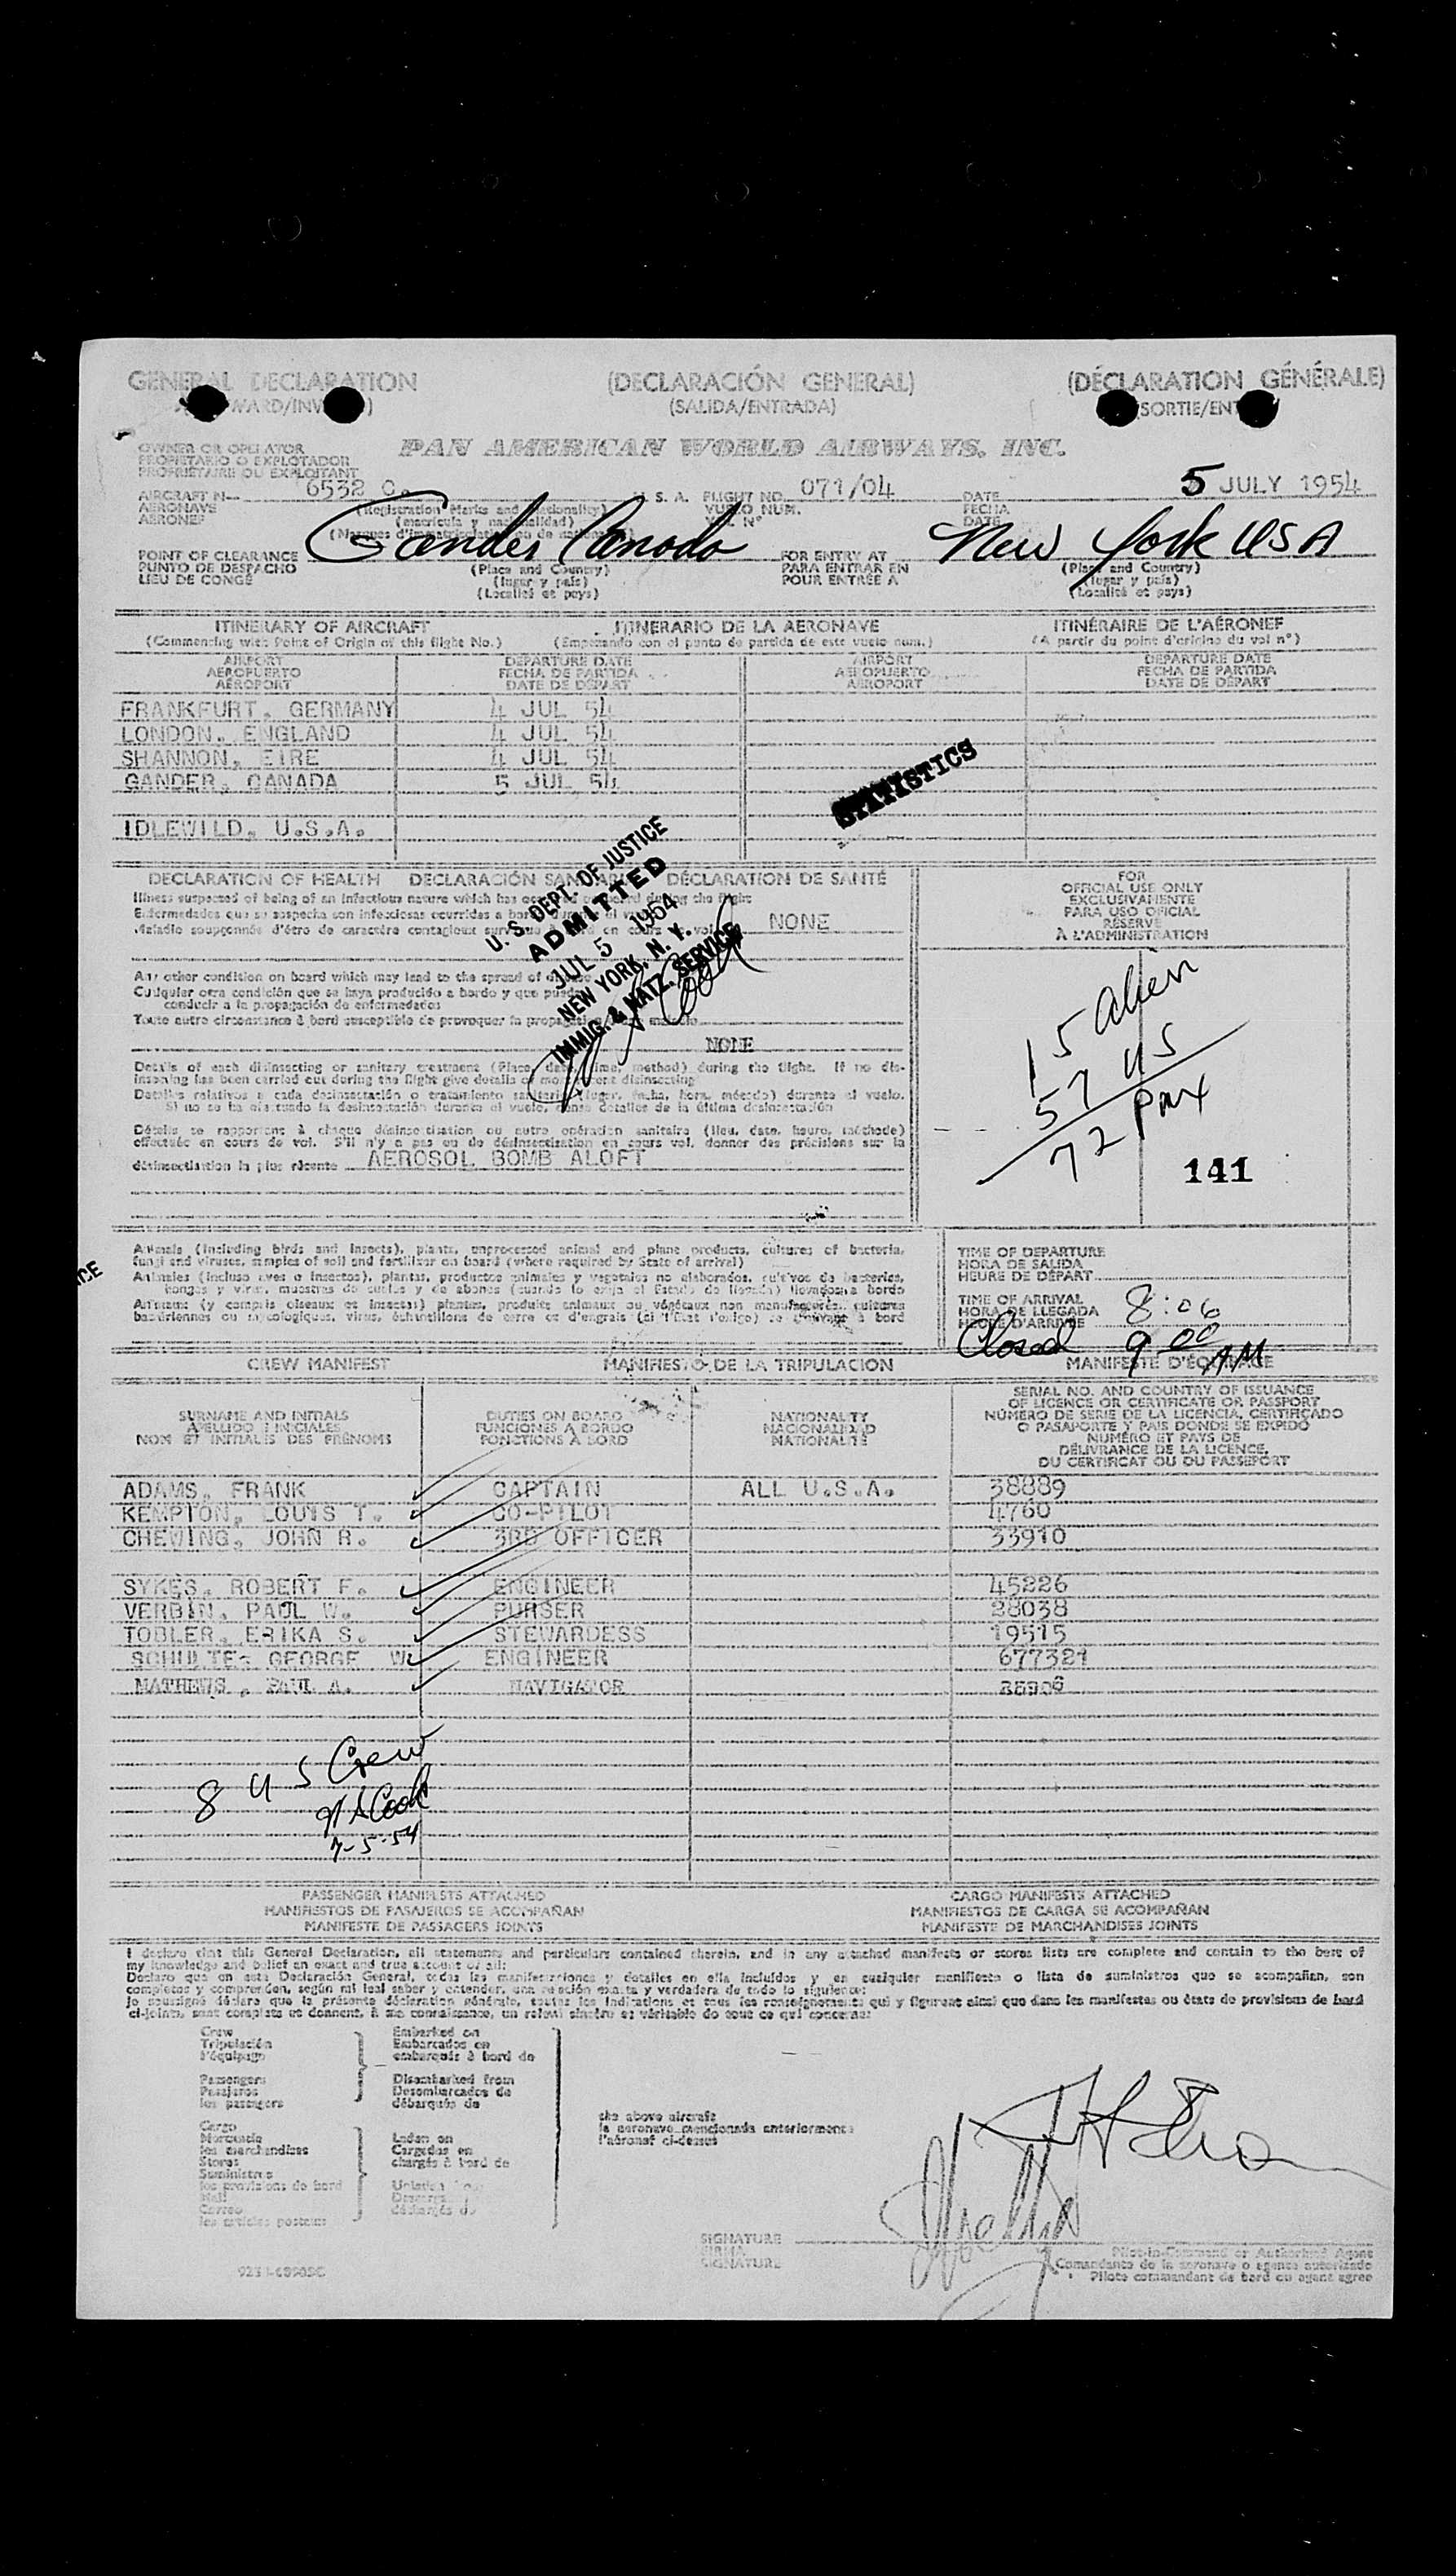 GENERAL DECLARATION (DECLARACIÓN GENERAL) (DÉCLARATION GÉNÉRALE)
(SALIDA/ENTRADA)
OWNER OR OPERATOR PAN AMERICAN WORLD AIRWAYS, INC.
PROPIETARIO O EXPLOTADOR
PROPRIÉTAIRE OU EXPLOITANT
AIRCRAFT N— 6532 C. U. S. A. FLIGHT NO. 071/04 DATE 5 JULY 1954
AERONAVE (Registration Marks and Nationality) VUELO NUM. FECHA
AÉRONEF (matrícula y nacionalidad) VOL N° DATE
POINT OF CLEARANCE Gander Canada FOR ENTRY AT New York USA
PUNTO DE DESPACHO (Place and Country) PARA ENTRAR EN (Place and Country)
LIEU DE CONGÉ (lugar y país) POUR ENTRÉE A (lugar y país)
(Localité et pays) (Localité et pays)
ITINERARY OF AIRCRAFT ITINERARIO DE LA AERONAVE ITINÉRAIRE DE L'AÉRONEF
(Commencing with Point of Origin of this flight No.) (Empezando con el punto de partida de este vuelo num.) (A partir du point d'origine du vol n°)
AIRPORT DEPARTURE DATE AIRPORT DEPARTURE DATE
AEROPUERTO FECHA DE PARTIDA AEROPUERTO FECHA DE PARTIDA
AÉROPORT DATE DE DÉPART AÉROPORT DATE DE DÉPART
FRANKFURT, GERMANY 4 JUL 54
LONDON, ENGLAND 4 JUL 54
SHANNON, EIRE 4 JUL 54
GANDER, CANADA 5 JUL 54
STATISTICS
IDLEWILD, U.S.A.
U. S. DEPT. OF JUSTICE
ADMITTED
JUL 5 1954
NEW YORK, N. Y.
IMMIG. & NATZ. SERVICE
DECLARATION OF HEALTH DECLARACIÓN SANITARIA DÉCLARATION DE SANTÉ
Illness suspected of being of an infectious nature which has occurred on board during the flight
Enfermedades que se sospecha son infecciosas ocurridas a bordo durante el vuelo
Maladie soupçonnée d'être de caractère contagieux survenue à bord en cours de vol NONE
Any other condition on board which may lead to the spread of disease
Cualquier otra condición que se haya producido a bordo y que pueda
conducir a la propagación de enfermedades
Toute autre circonstance à bord susceptible de provoquer la propagation
NONE
Details of each disinsecting or sanitary treatment (Place, date, time, method) during the flight. If no dis-
insecting has been carried out during the flight give details of most recent disinsecting
Detalles relativos a cada desinsectación o tratamiento sanitario (lugar, fecha, hora, método) durante el vuelo.
Si no se ha efectuado la desinsectación durante el vuelo, dense detalles de la última desinsectación
Détails se rapportant à chaque désinsectisation ou autre opération sanitaire (lieu, date, heure, méthode)
effectuée en cours de vol. S'il n'y a pas eu de désinsectisation en cours vol, donner des précisions sur la
désinsectisation la plus récente AEROSOL BOMB ALOFT
FOR
OFFICIAL USE ONLY
EXCLUSIVAMENTE
PARA USO OFICIAL
RÉSERVÉ
À L'ADMINISTRATION
15 alien
57 US
72 Pax
141
Animals (including birds and insects), plants, unprocessed animal and plane products, cultures of bacteria,
fungi and viruses, samples of soil and fertilizer on board (where required by State of arrival)
Animales (incluso aves o insectos), plantas, productos animales y vegetales no elaborados, cultivos de bacterias,
hongos y virus, muestras de suelos y de abonos (cuando lo exija el Estado de llegada) llevados a bordo
Animaux (y compris oiseaux et insectes) plantes, produits animaux ou végétaux non manufacturés, cultures
bactériennes ou mycologiques, virus, échantillons de terre et d'engrais (si l'État l'exige) se trouvant à bord
TIME OF DEPARTURE
HORA DE SALIDA
HEURE DE DÉPART
TIME OF ARRIVAL
HORA DE LLEGADA 8:06
HEURE D'ARRIVÉE
Closed 9 00 AM
CREW MANIFEST MANIFIESTO DE LA TRIPULACION MANIFESTE D'ÉQUIPAGE
SURNAME AND INITIALS DUTIES ON BOARD NATIONALITY
APELLIDO E INICIALES FUNCIONES A BORDO NACIONALIDAD
NOM ET INITIALES DES PRÉNOMS FONCTIONS À BORD NATIONALITÉ
SERIAL NO. AND COUNTRY OF ISSUANCE
OF LICENCE OR CERTIFICATE OR PASSPORT
NÚMERO DE SERIE DE LA LICENCIA, CERTIFICADO
O PASAPORTE Y PAIS DONDE SE EXPIDÓ
NUMÉRO ET PAYS DE
DÉLIVRANCE DE LA LICENCE,
DU CERTIFICAT OU DU PASSEPORT
ADAMS, FRANK CAPTAIN ALL U.S.A. 38889
KEMPTON, LOUIS T. CO-PILOT 4760
CHEWING, JOHN R. 3RD OFFICER 33910
SYKES, ROBERT F. ENGINEER 45226
VERBIN, PAUL W. PURSER 28038
TOBLER, ERIKA S. STEWARDESS 19515
SCHULTE, GEORGE W. ENGINEER 677321
MATHEWS, PAUL A. NAVIGATOR
8 U S Crew
Cook
7-5-54
PASSENGER MANIFESTS ATTACHED CARGO MANIFESTS ATTACHED
MANIFIESTOS DE PASAJEROS SE ACOMPAÑAN MANIFIESTOS DE CARGA SE ACOMPAÑAN
MANIFESTE DE PASSAGERS JOINTS MANIFESTE DE MARCHANDISES JOINTS
I declare that this General Declaration, all statements and particulars contained therein, and in any attached manifests or stores lists are complete and contain to the best of
my knowledge and belief an exact and true account of all:
Declaro que en esta Declaración General, todas las manifestaciones y detalles en ella incluidos y en cualquier manifiesto o lista de suministros que se acompañan, son
completos y comprenden, según mi leal saber y entender, una relación exacta y verdadera de todo lo siguiente:
Je soussigné déclare que la présente déclaration générale, toutes les indications et tous les renseignements qui y figurent ainsi que dans les manifestes ou états de provisions de bord
ci-joints, sont complets et donnent, à ma connaissance, un relevé sincère et véritable de tous ce qui concerne:
Crew Embarked on
Tripulación Embarcados en
l'équipage embarqués à bord de
Passengers Disembarked from
Pasajeros Desembarcados de
les passagers débarqués de
Cargo
Mercancía Laden on
les marchandises Cargados en
Stores chargés à bord de
Suministros
les provisions de bord
Mail
Correo
les articles postaux
the above aircraft
la aeronave mencionada anteriormente
l'aéronef ci-dessus
SIGNATURE
FIRMA
SIGNATURE
Pilot-in-Command or Authorized Agent
Comandante de la aeronave o agente autorizado
Pilote commandant de bord ou agent agree